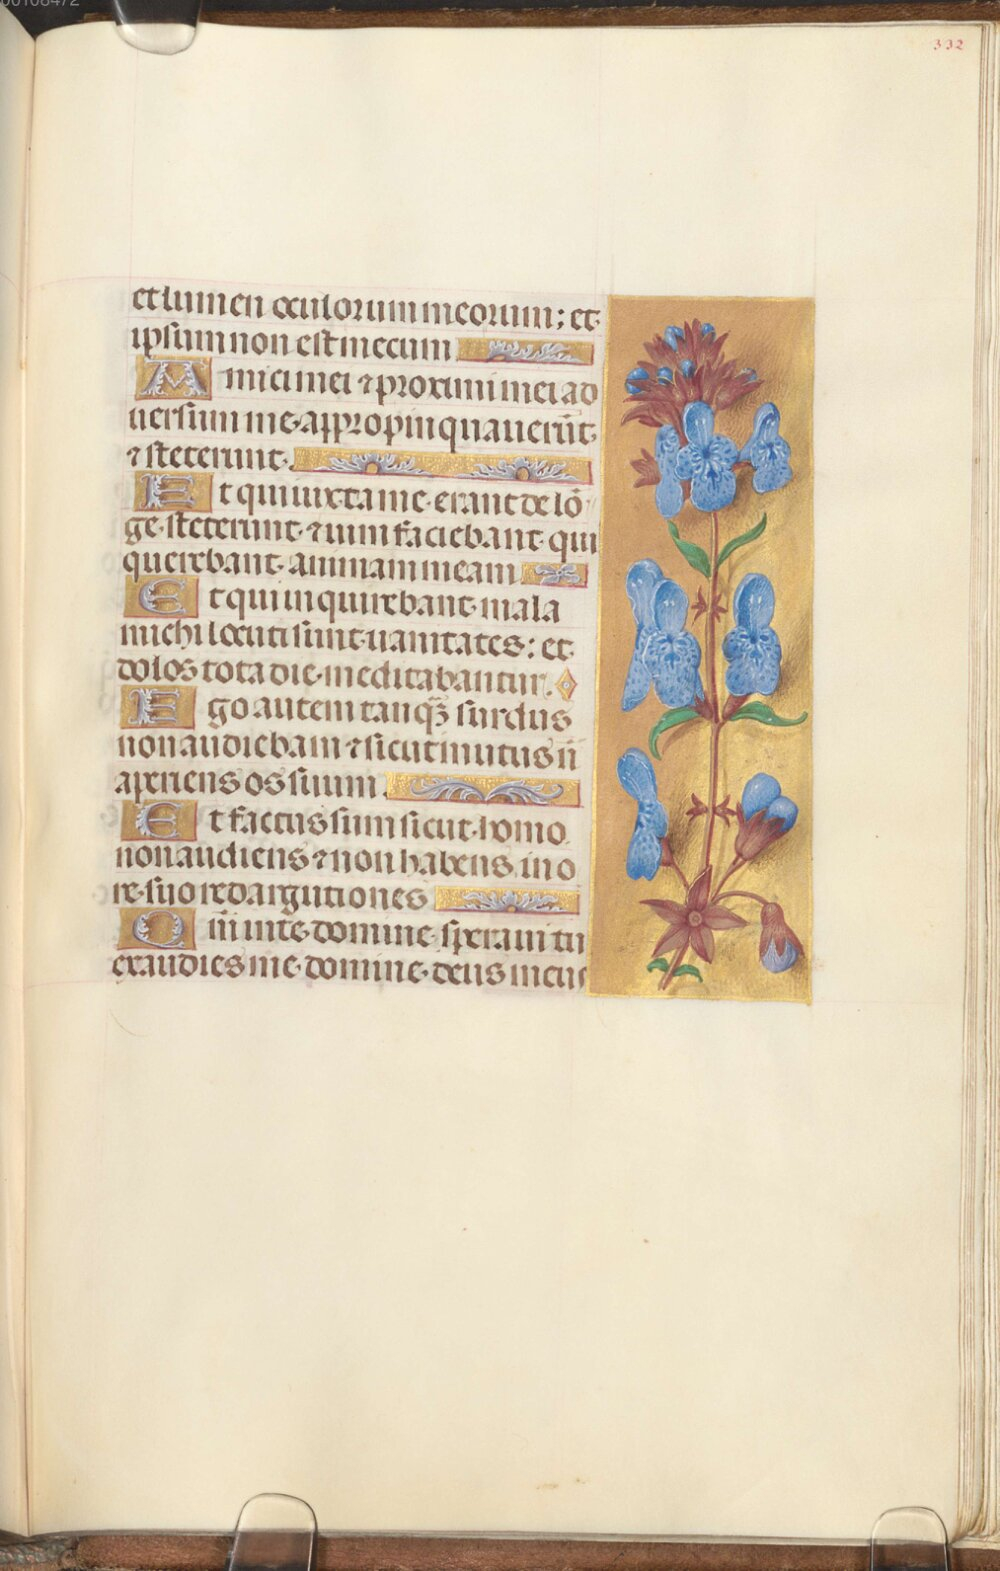 00108472
332
et lumen oculorum meorum; et
ipsum non est mecum
Amici mei ⁊ proximi mei ad
uersum me appropinquauerūt
⁊ steterunt.
Et qui iuxta me erant de lō
ge steterunt ⁊ uim faciebant qui
querebant animam meam
Et qui inquirebant mala
michi locuti sunt uanitates: et
dolos tota die meditabantur.
Ego autem tanqȝ surdus
non audiebam ⁊ sicut mutus nō
aperiens os suum
Et factus sum sicut homo
non audiens ⁊ non habens in o
re suo redargutiones
Qm̄ in te domine speraui tu
exaudies me domine deus meus